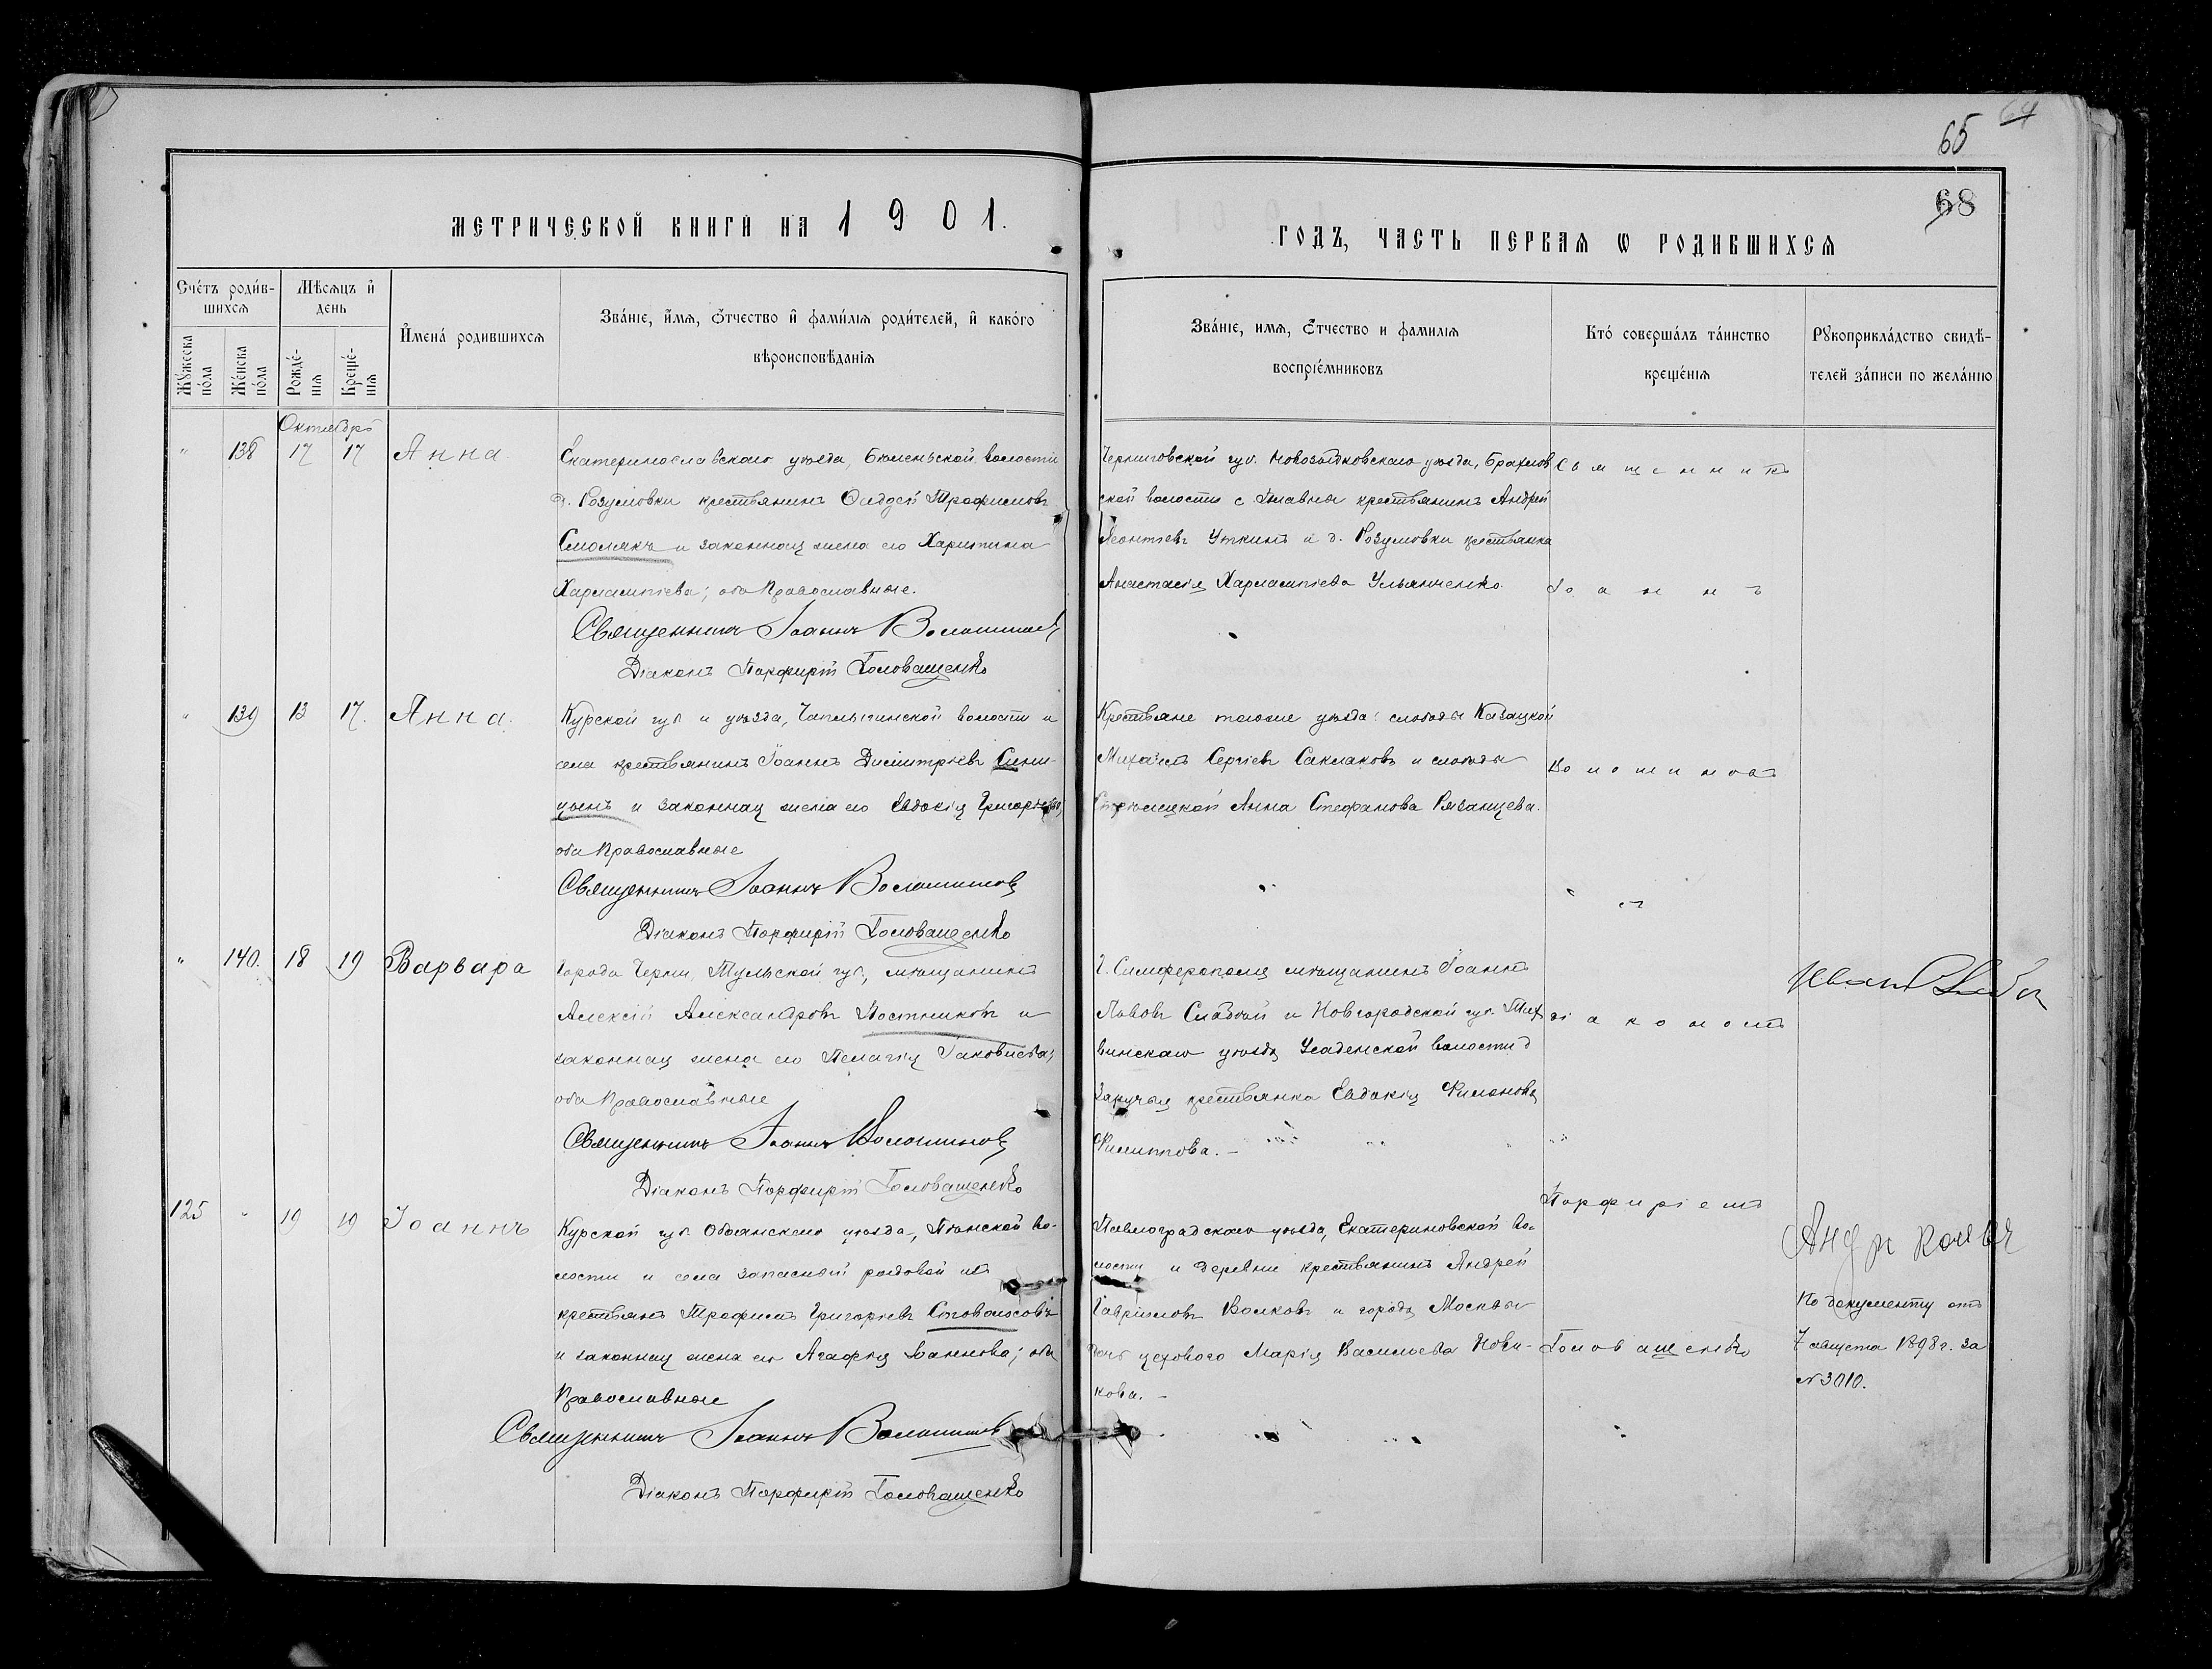 65
68
МЕТРИЧЕСКОЙ КНИГИ НА 1901.
ГОДЪ, ЧАСТЬ ПЕРВАЯ Ѡ РОДИВШИХСЯ
Счетъ родив-
шихся
Мѣсяцъ и
день
Мужеска
пола
Женска
пола
Рожде-
нія
Креще-
нія
Имена родившихся
Званіе, имя, отчество и фамилія родителей, и какого
вѣроисповѣданія
Званіе, имя, отчество и фамилія
воспріемниковъ
Кто совершалъ таинство
крещенія
Рукоприкладство свидѣ-
телей записи по желанію
Октябрь
" 138 17 17 Анна.
Екатеринославскаго уѣзда, волости
д. Розумовки крестьянинъ Трофимовъ
Смолякъ и законная жена его Харитина
Харлампіева; оба Православные.
Священникъ Іоаннъ Волошиновъ
Діаконъ Порфирій Головащенко
Черниговской губ. Новозыбковскаго уѣзда, Брахлов
ской волости с. крестьянинъ Андрей
Леонтіевъ Уткинъ и д. Розумовки крестьянка
Анастасія Харлампіева Ульянченко
Священникъ
Іоаннъ
" 139 13 17. Анна.
Курской губ. и уѣзда, Чаплыгинской волости и
села крестьянинъ Іоаннъ Димитріевъ Сини-
цынъ и законная жена его Евдокія Григорьева,
оба Православные
Священникъ Іоаннъ Волошиновъ
Діаконъ Порфирій Головащенко
Крестьяне того же уѣзда: слободы Казацкой
Михаилъ Сергіевъ Саклаковъ и слободы
Стрѣлецкой Анна Стефанова Рязанцева.
Волошиновъ
" 140. 18 19 Варвара
Города Черни, Тульской губ., мѣщанинъ
Алексій Александровъ Постниковъ и
законная жена его Пелагія Іаковлева;
оба Православные
Священникъ Іоаннъ Волошиновъ
Діаконъ Порфирій Головащенко
Г. Симферополя мѣщанинъ Іоаннъ
Львовъ Слабкой и Новгородской губ. Тих
винскаго уѣзда Усадинской волости д
Заручья крестьянка Евдокія Филонова
Филиппова. –
Діакономъ
Порфиріемъ
Иванъ
125 " 19 19 Іоаннъ
Курской губ. Обоянскаго уѣзда, во-
лости и села запасный рядовой изъ
крестьянъ Трофимъ Григорьевъ Стоволосовъ
и законная жена его Агафія Іоаннова; оба
Православные
Священникъ Іоаннъ Волошиновъ
Діаконъ Порфирій Головащенко
Павлоградскаго уѣзда, Екатериновской во-
лости и деревни крестьянинъ Андрей
Гавріиловъ Волковъ и города Москвы
дочь цехового Марія Васильева Нови-
кова. –
Головащенко
По документу отъ
7 августа 1898 г. за
№ 3010.